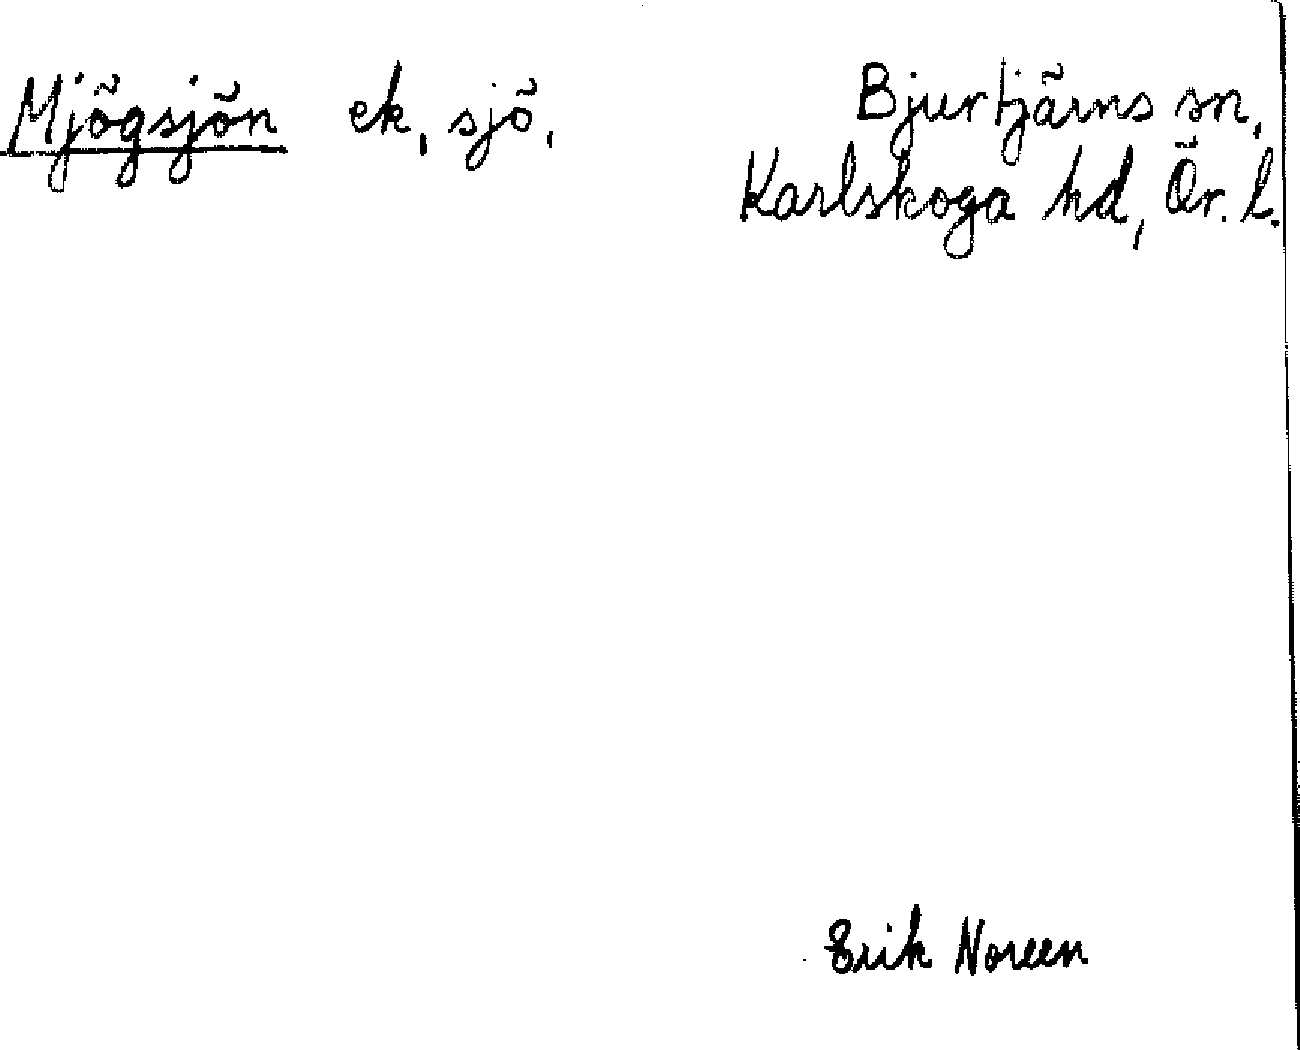 Mjögsjön ek, sjö,
Bjurtjärns sn,
Karlskoga hd, Ör. l.
Erik Noreen